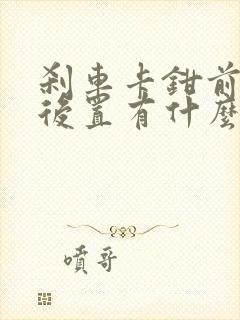 刹車卡鉗前
後置有什麼
噴哥